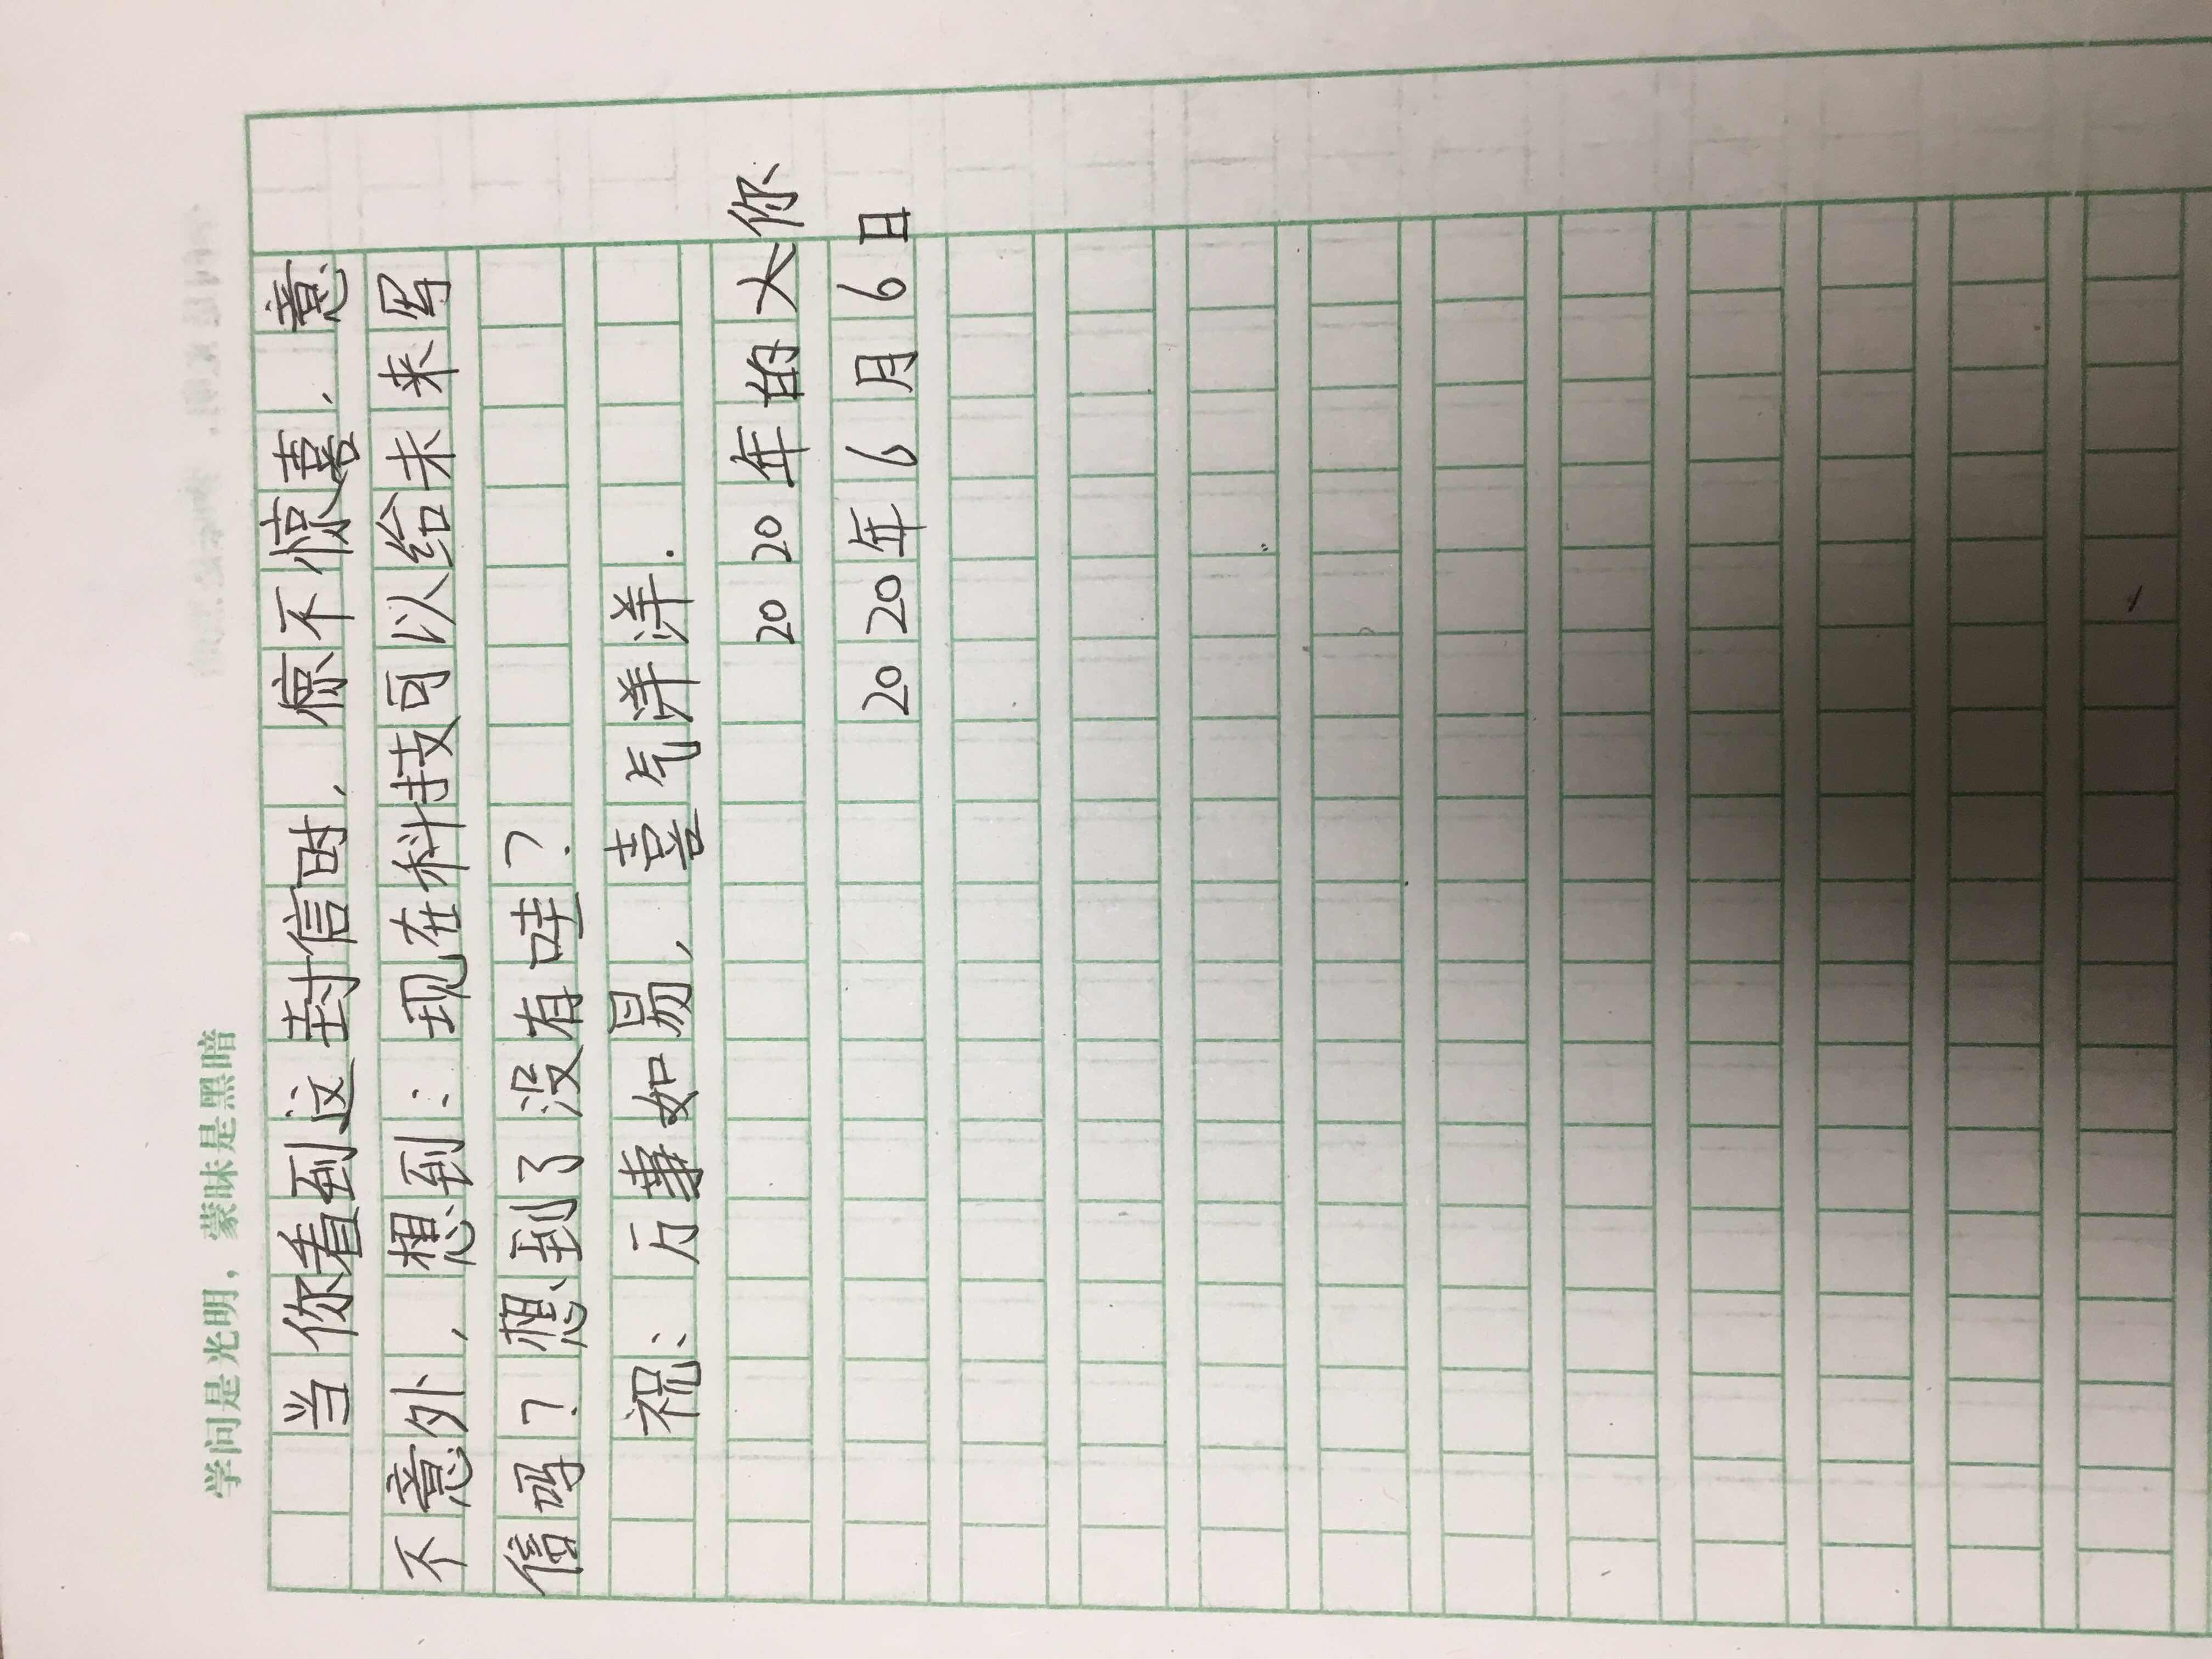 学问是光明，蒙昧是黑暗
当你看到这封信时，惊不惊喜，意
不意外，想到：现在科技可以给未来写
信吗？想到了没有哇？
祝：万事如易，喜气洋洋.
2020年的大你
2020年6月6日